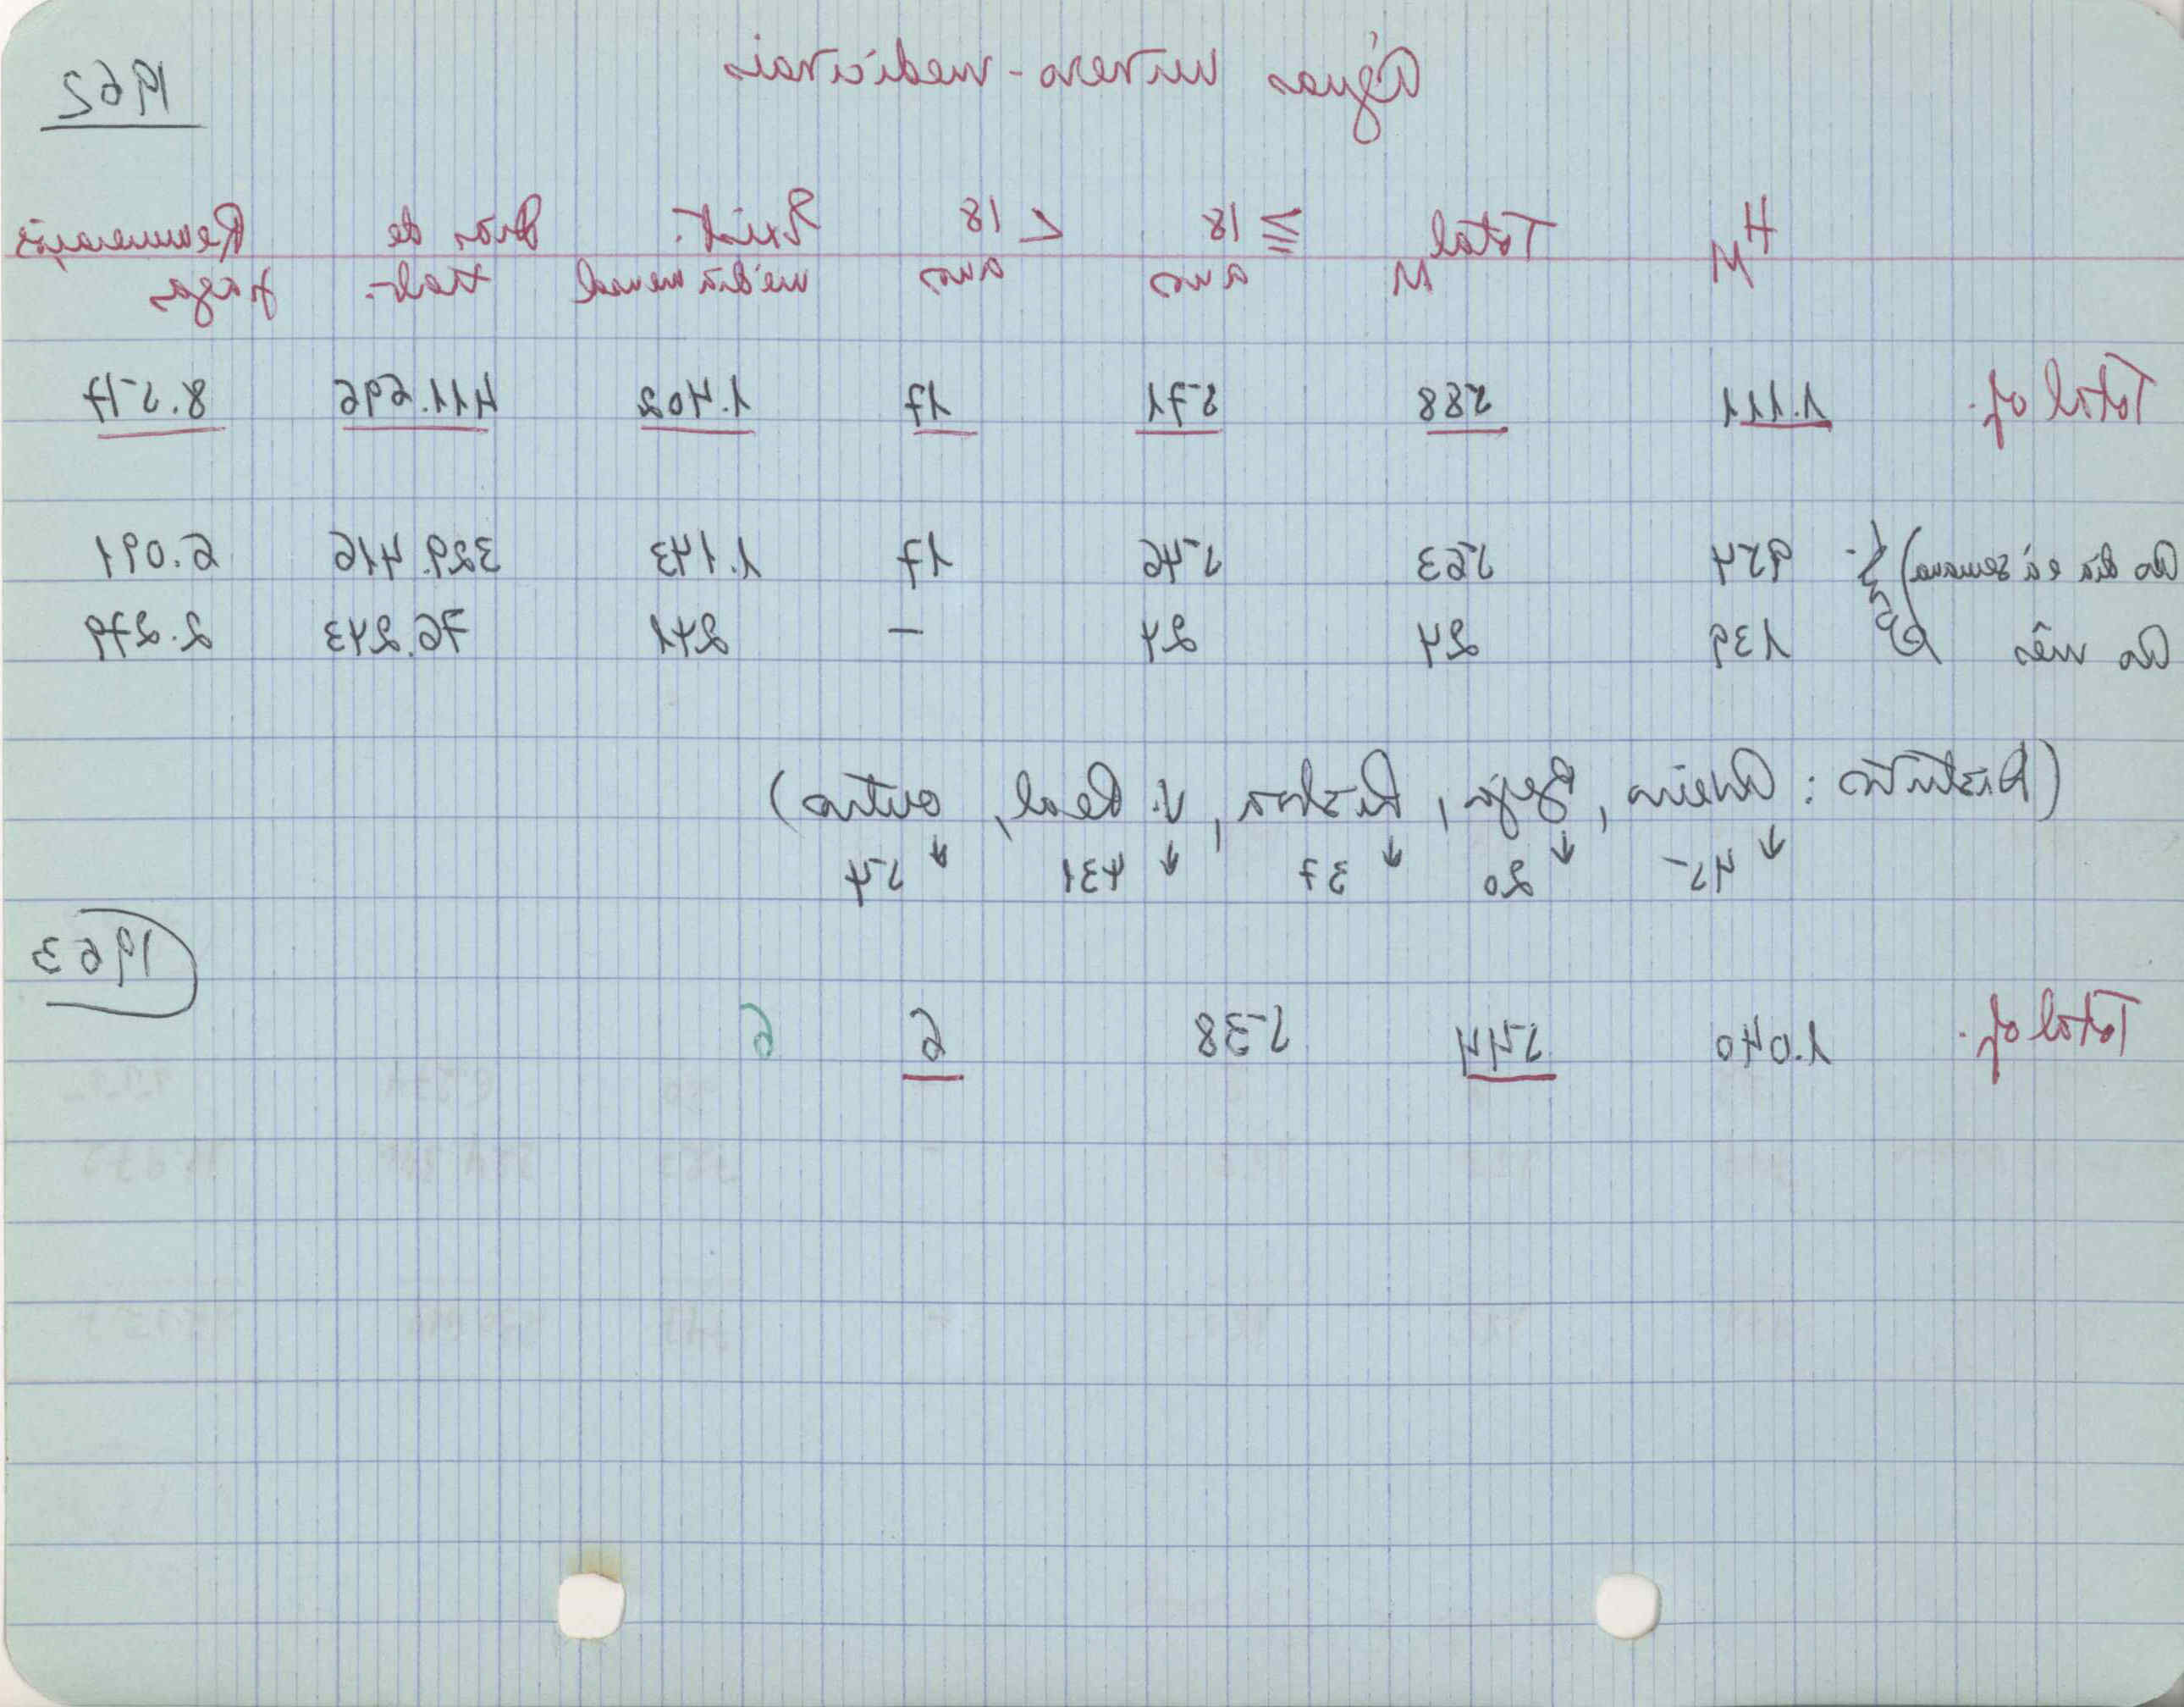 Águas minero-medicinais 1962
HM Total M ≧ 18 anos < 18 anos Exist. média mensal Dias de trab. Remunerações pagas
Total of. 1.111 588 571 17 1.402 411.696 8.517
Ao dia e à semana) 954 563 546 17 1.143 329.416 6.091
Ao mês 139 24 24 – 241 76.243 2.279
(Distritos: Aveiro, Beja, Lisboa, V. Real, outros)
↓ 45 ↓ 20 ↓ 37 ↓ 431 ↓ 54
1963
Total of. 1.040 544 538 6 6